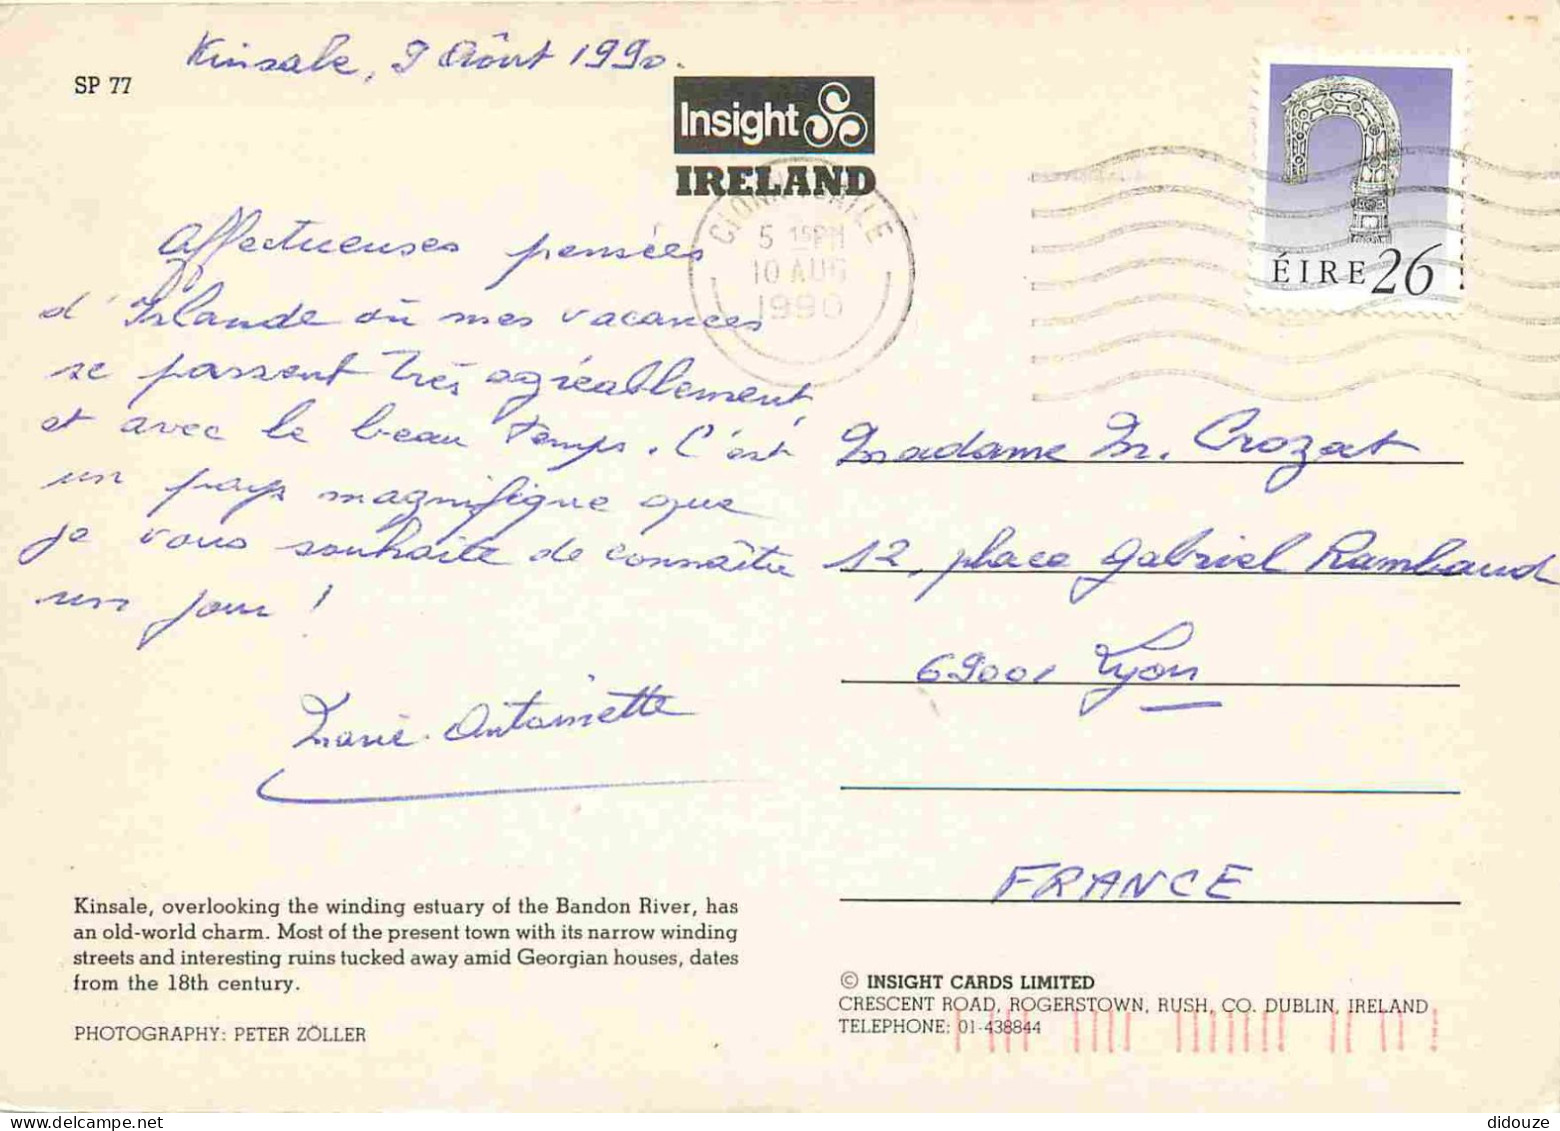 Kinsale, 9 Août 1990.
SP 77
Insight
IRELAND
CLONAKILTE
5 15PM
10 AUG
1990
ÉIRE 26
Affectueuses pensées
d'Irlande où mes vacances
se passent très agréablement,
et avec le beau temps. C'est
un pays magnifique que
je vous souhaite de connaître
un jour !
Marie-Antoinette
Madame M. Crozat
12, place Gabriel Rambaud
69001 Lyon
FRANCE
Kinsale, overlooking the winding estuary of the Bandon River, has
an old-world charm. Most of the present town with its narrow winding
streets and interesting ruins tucked away amid Georgian houses, dates
from the 18th century.
PHOTOGRAPHY: PETER ZÖLLER
© INSIGHT CARDS LIMITED
CRESCENT ROAD, ROGERSTOWN, RUSH, CO. DUBLIN, IRELAND
TELEPHONE: 01-438844
didouze